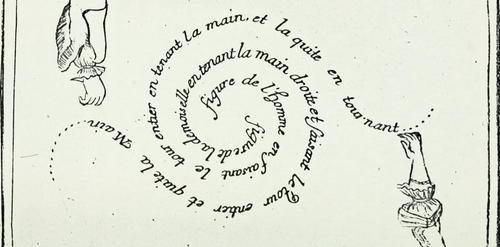 figure de l'homme en faisant le tour entier en tenant la main, et la quite en tournant
figure de la demoiselle en tenant la main droite et faisant le tour entier et quite la Main